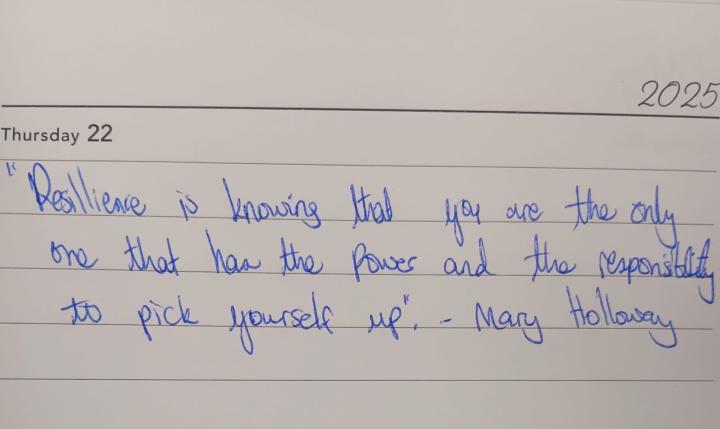 2025
Thursday 22
"Resillience is knowing that you are the only
one that has the power and the responsibility
to pick yourself up". - Mary Holloway